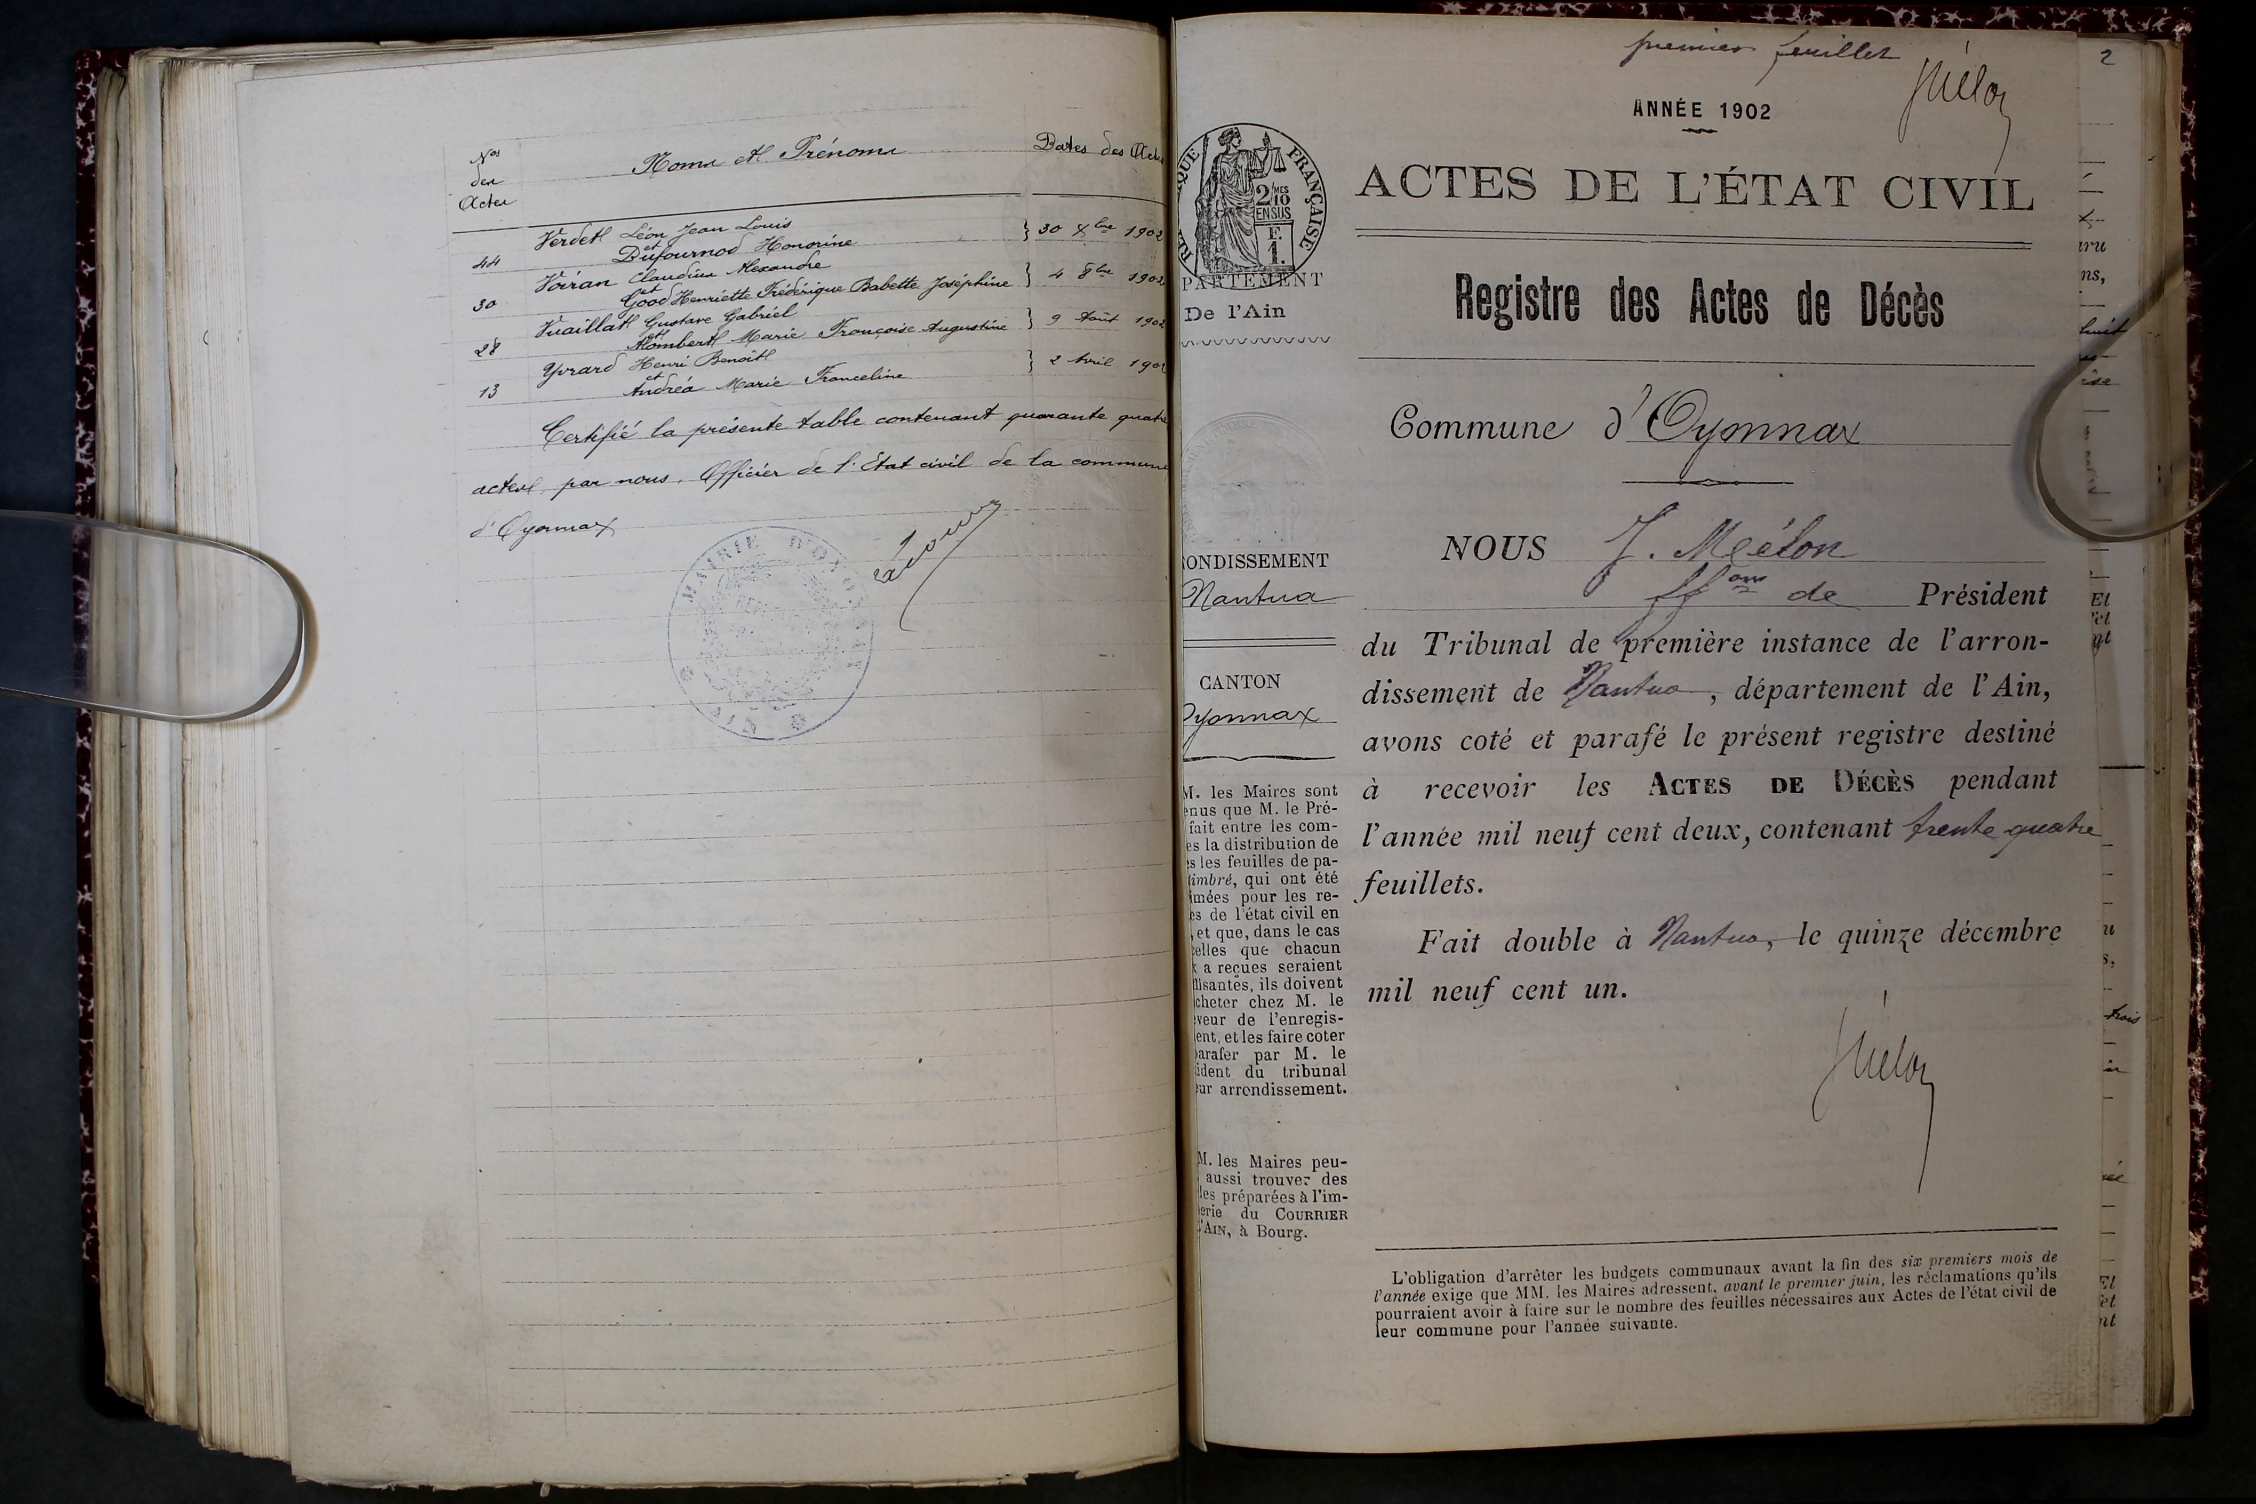 Nos des Actes
Noms et Prénoms
Dates des Actes
44 Verdet Léon Jean Louis
et Dufournod Honorine } 30 Xbre 1902
30 Voiran Claudius Alexandre
et Good Henriette Frédérique Babette Joséphine } 4 8bre 1902
28 Vuaillat Gustave Gabriel
et Hombert Marie Françoise Augustine } 9 Août 1902
13 Yvrard Henri Benoît
et Andréa Marie Franceline } 2 Avril 1902
Certifié la présente table contenant quarante quatre
actes, par nous, Officier de l'Etat civil de la commune
d'Oyonnax
MAIRIE D'OYONNAX
AIN
premier feuillet
2
ANNÉE 1902
ACTES DE L'ÉTAT CIVIL
QUE FRANÇAISE
2 MES
10
EN SUS
F.
1.
PARTEMENT
De l'Ain
Registre des Actes de Décès
Commune d'Oyonnax
ONDISSEMENT
Nantua
CANTON
Oyonnax
NOUS J. Miélon
ffons de Président
du Tribunal de première instance de l'arron-
dissement de Nantua, département de l'Ain,
avons coté et parafé le présent registre destiné
à recevoir les ACTES DE DÉCÈS pendant
l'année mil neuf cent deux, contenant trente quatre
feuillets.
Fait double à Nantua, le quinze décembre
mil neuf cent un.
M. les Maires sont
enus que M. le Pré-
fait entre les com-
es la distribution de
es les feuilles de pa-
timbré, qui ont été
imées pour les re-
es de l'état civil en
, et que, dans le cas
celles que chacun
x a reçues seraient
ffisantes, ils doivent
cheter chez M. le
eveur de l'enregis-
ent, et les faire coter
parafer par M. le
sident du tribunal
eur arrondissement.
M. les Maires peu-
aussi trouver des
les préparées à l'im-
erie du COURRIER
L'AIN, à Bourg.
L'obligation d'arrêter les budgets communaux avant la fin des six premiers mois de
l'année exige que MM. les Maires adressent, avant le premier juin, les réclamations qu'ils
pourraient avoir à faire sur le nombre des feuilles nécessaires aux Actes de l'état civil de
leur commune pour l'année suivante.